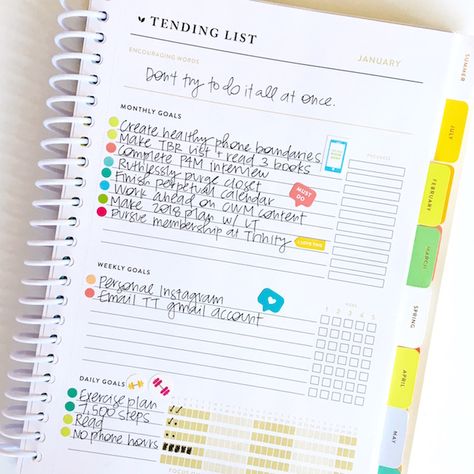 TENDING LIST
ENCOURAGING WORDS
JANUARY
Don't try to do it all at once.
MONTHLY GOALS
PROGRESS
Create healthy phone boundaries
Make TBR list + read 3 books
Complete P4M interview
Ruthlessly purge closet
Finish perpetual calendar
MUST DO
Work ahead on CWM content
Make 2018 plan w/ LT
Pursue membership at Trinity
WEEKLY GOALS
WEEK
Personal Instagram
Email TT gmail account
DAILY GOALS
Exercise plan
7,500 steps
Read
No phone hours
SUMMER
JULY
FEBRUARY
MARCH
SPRING
APRIL
MAY